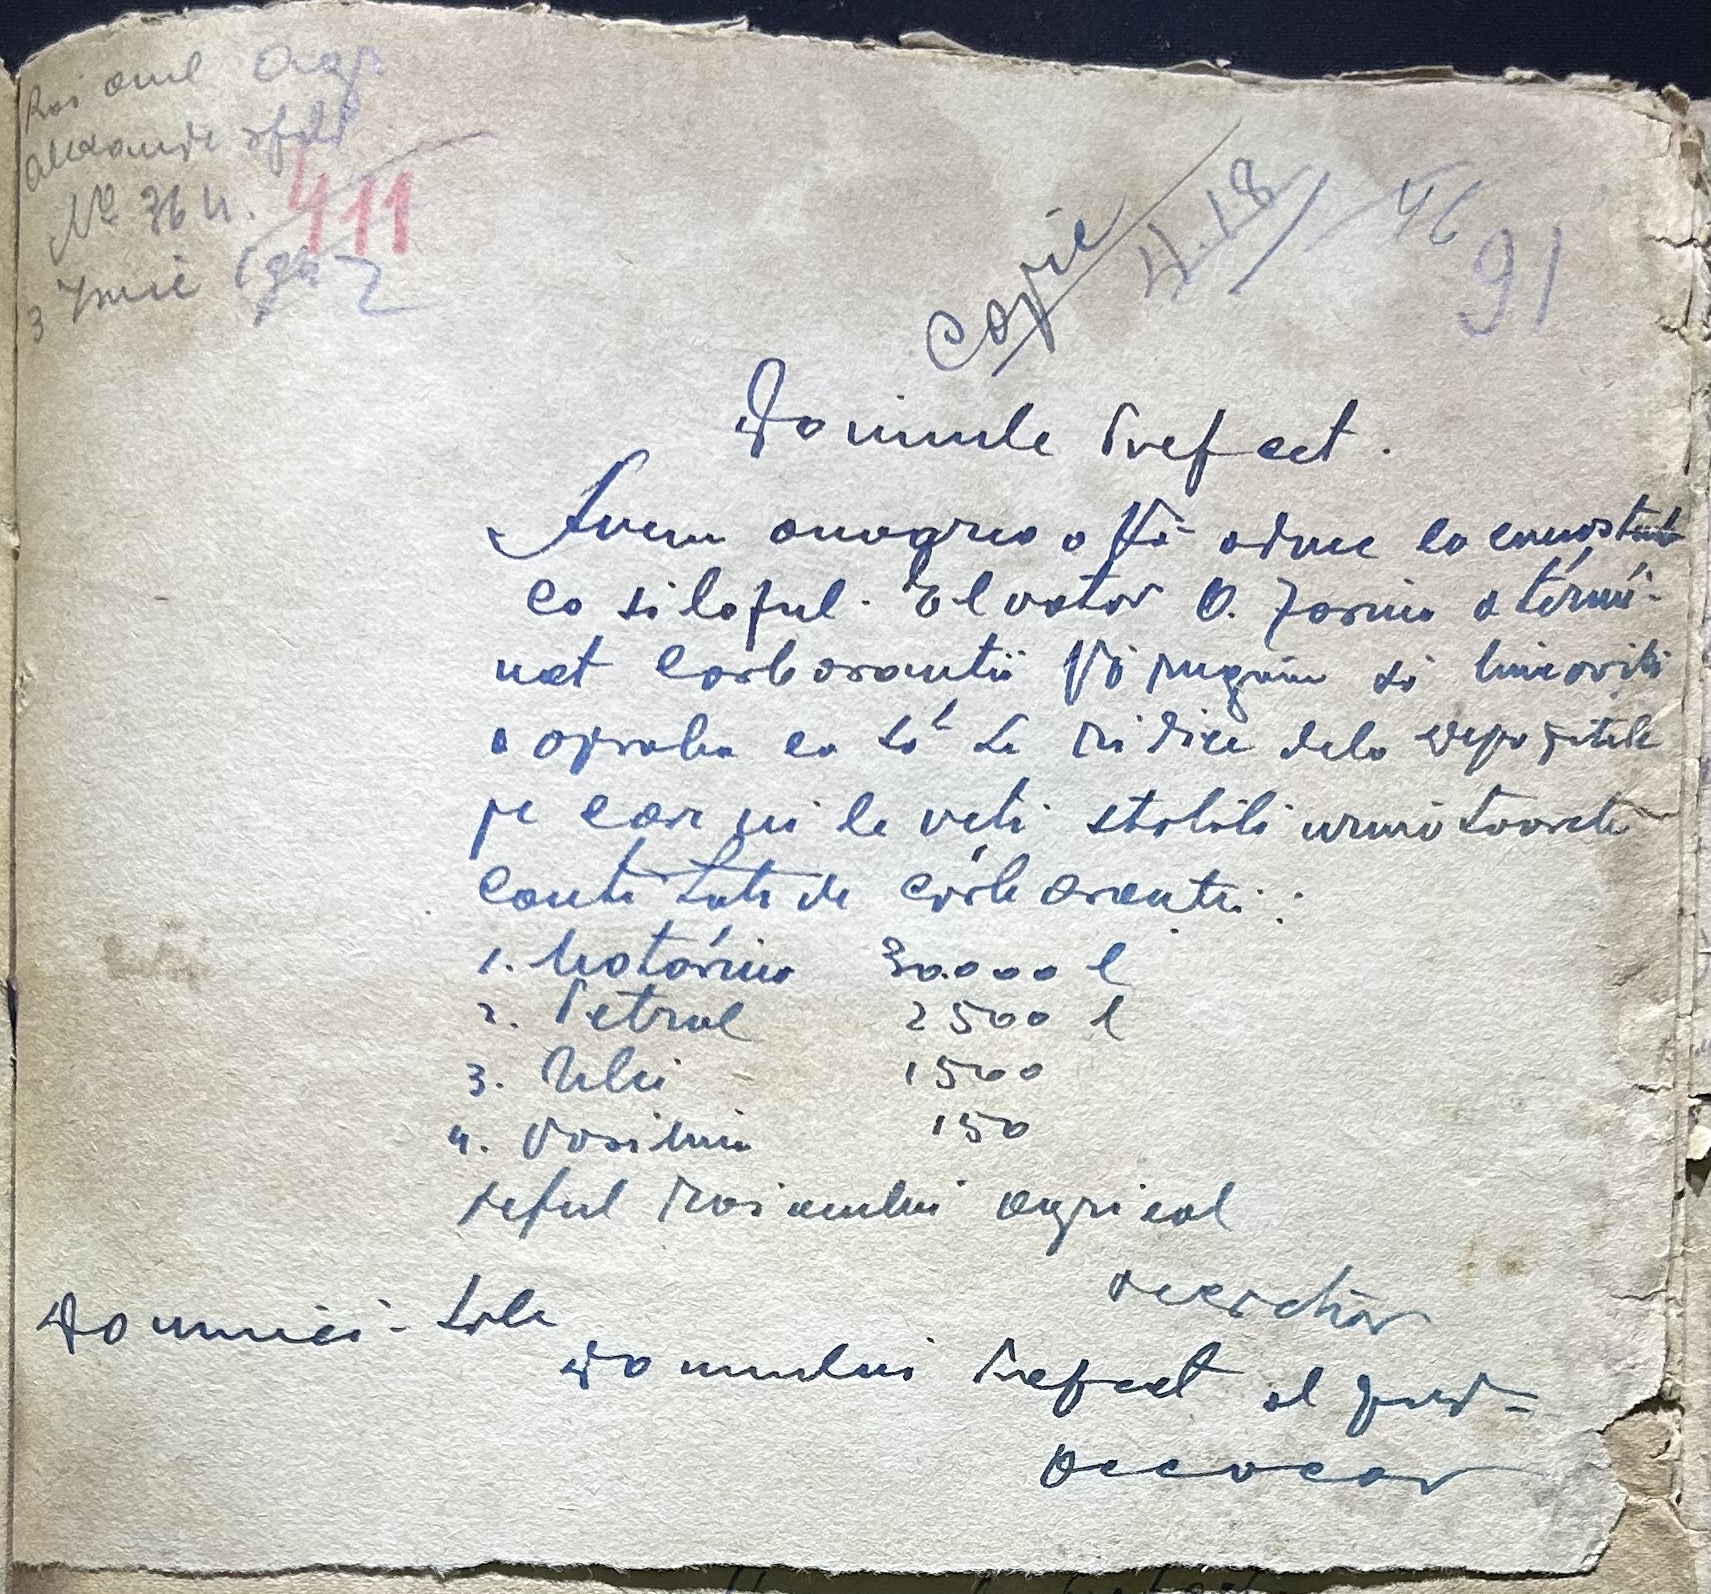 Raionul Agr
Alexanderfeld
No 764.
3 Iunie 1942
411
Copie
4.18/
46
91
Domnule Prefect.
Avem onoarea a Vă aduce la cunostinta
ca siloful. Elvator O. Jarniu a termi-
nat carborantii Vă rugăm să binevoiti
a aproba ca să se ridice dela depozitele
pe care ni le veti stabili urmatoarele
cantitati de carborantii:
1. Motorina 30.000 l
2. Petrol 2500 l
3. Ulei 1500
4. Vasilina 150
seful Raionului agricol
Domniei-Sale
Domnului Prefect al jud=